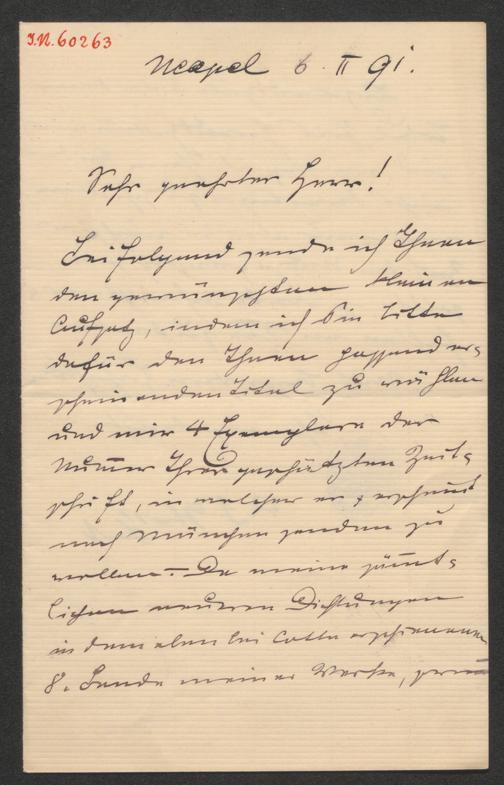 J.N. 60263
Neapel 6. II 91.
Sehr geehrter Herr!
Beifolgend sende ich Ihnen
den gewünschten kleinen
Aufsatz, indem ich Sie bitte
dafür den Ihnen passend er-
scheinenden Titel zu wählen
und mir 4 Exemplare der
Numer Ihrer geschätzten Zeit-
schrift, in welcher er erscheint
nach München senden zu
wollen. – Da meine sämt-
lichen neueren Dichtungen
in dem eben bei Cotta erschienenen
8. Bande meiner Werke,